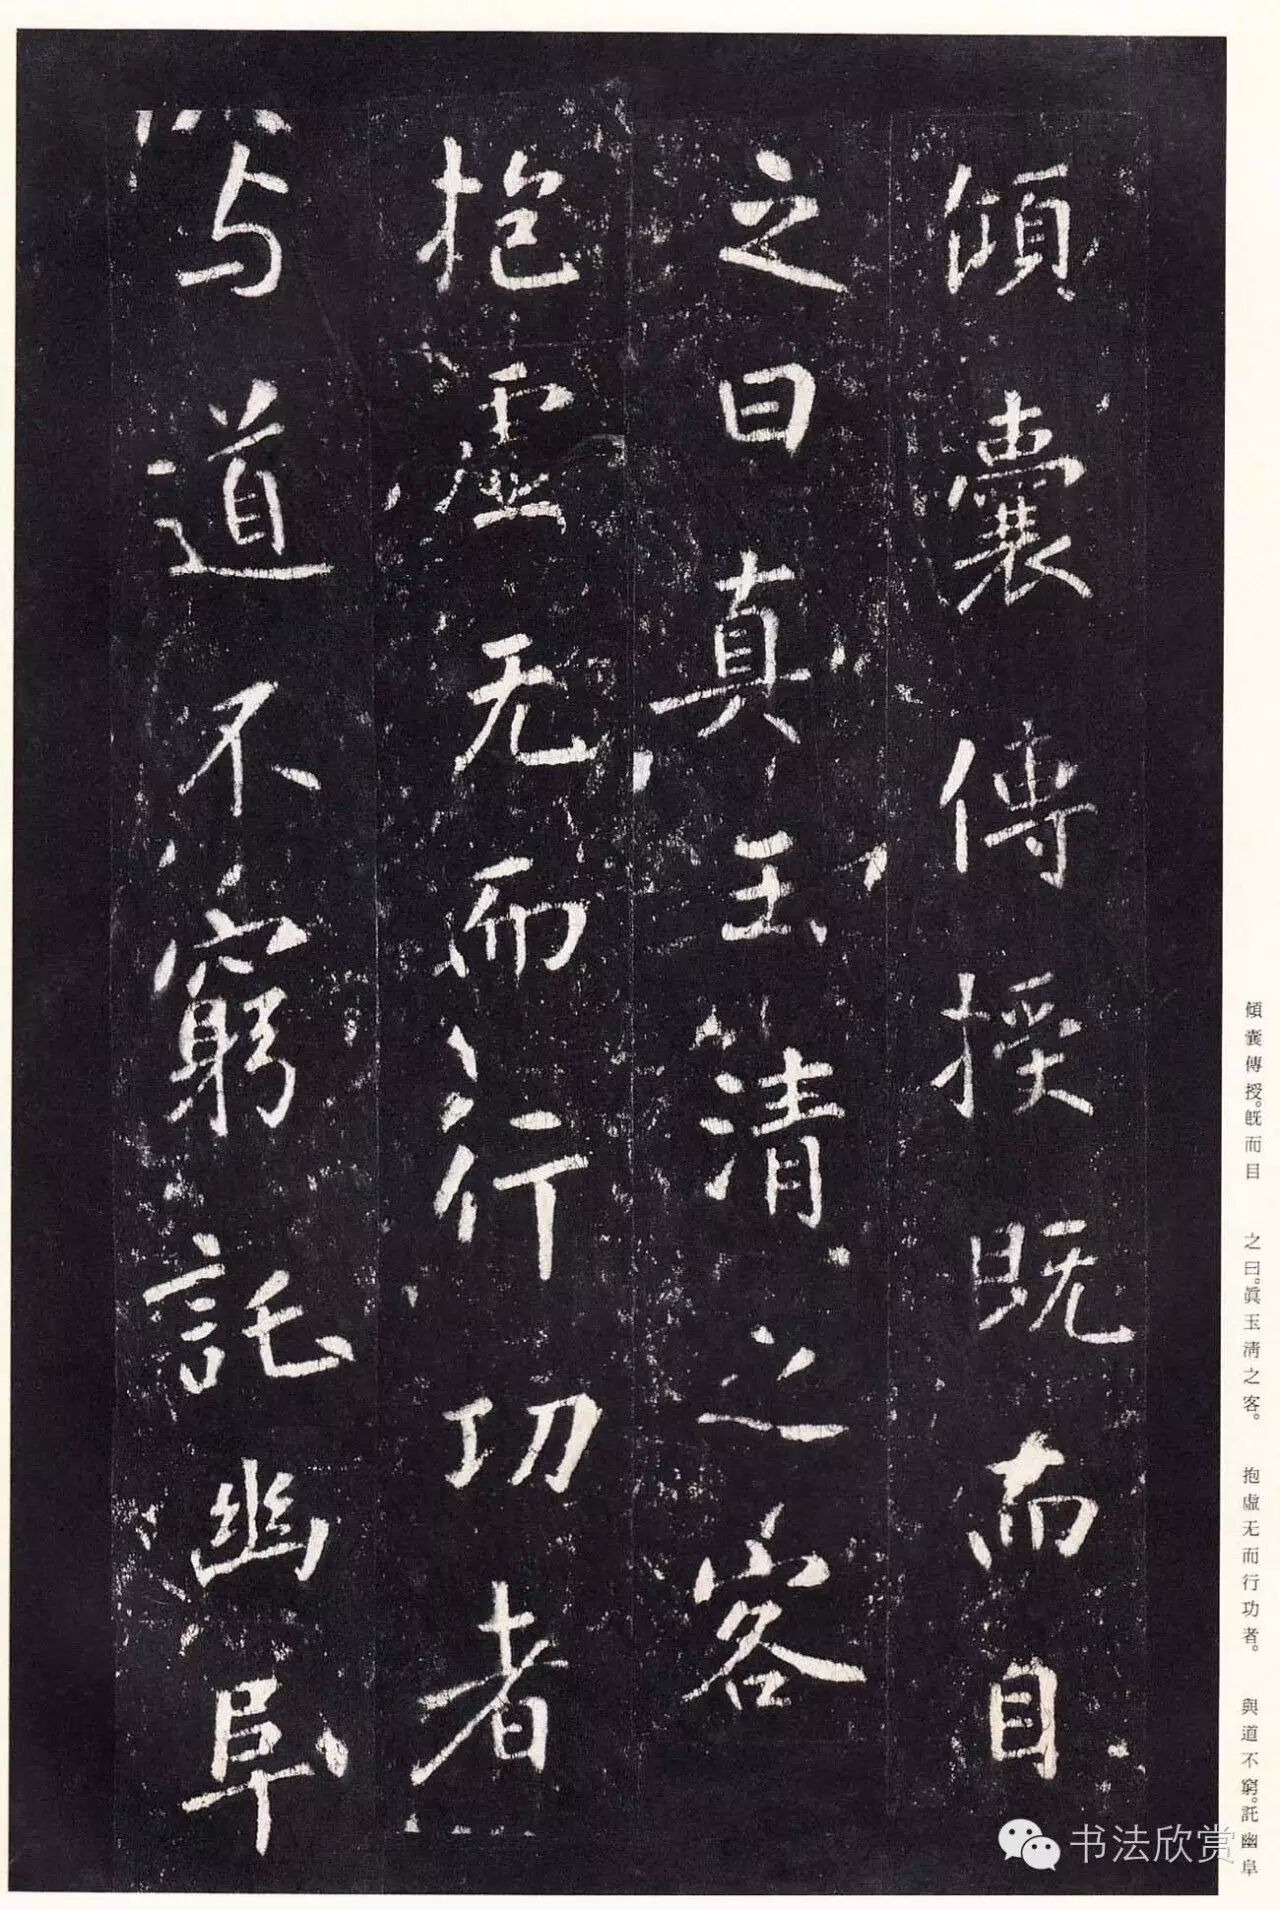 傾囊傳授既而目
之曰真玉清之客
抱虛无而行功者
与道不窮託幽阜
傾囊傳授。既而目
之曰。眞玉淸之客。
抱虛无而行功者。
與道不窮。託幽阜
书法欣赏